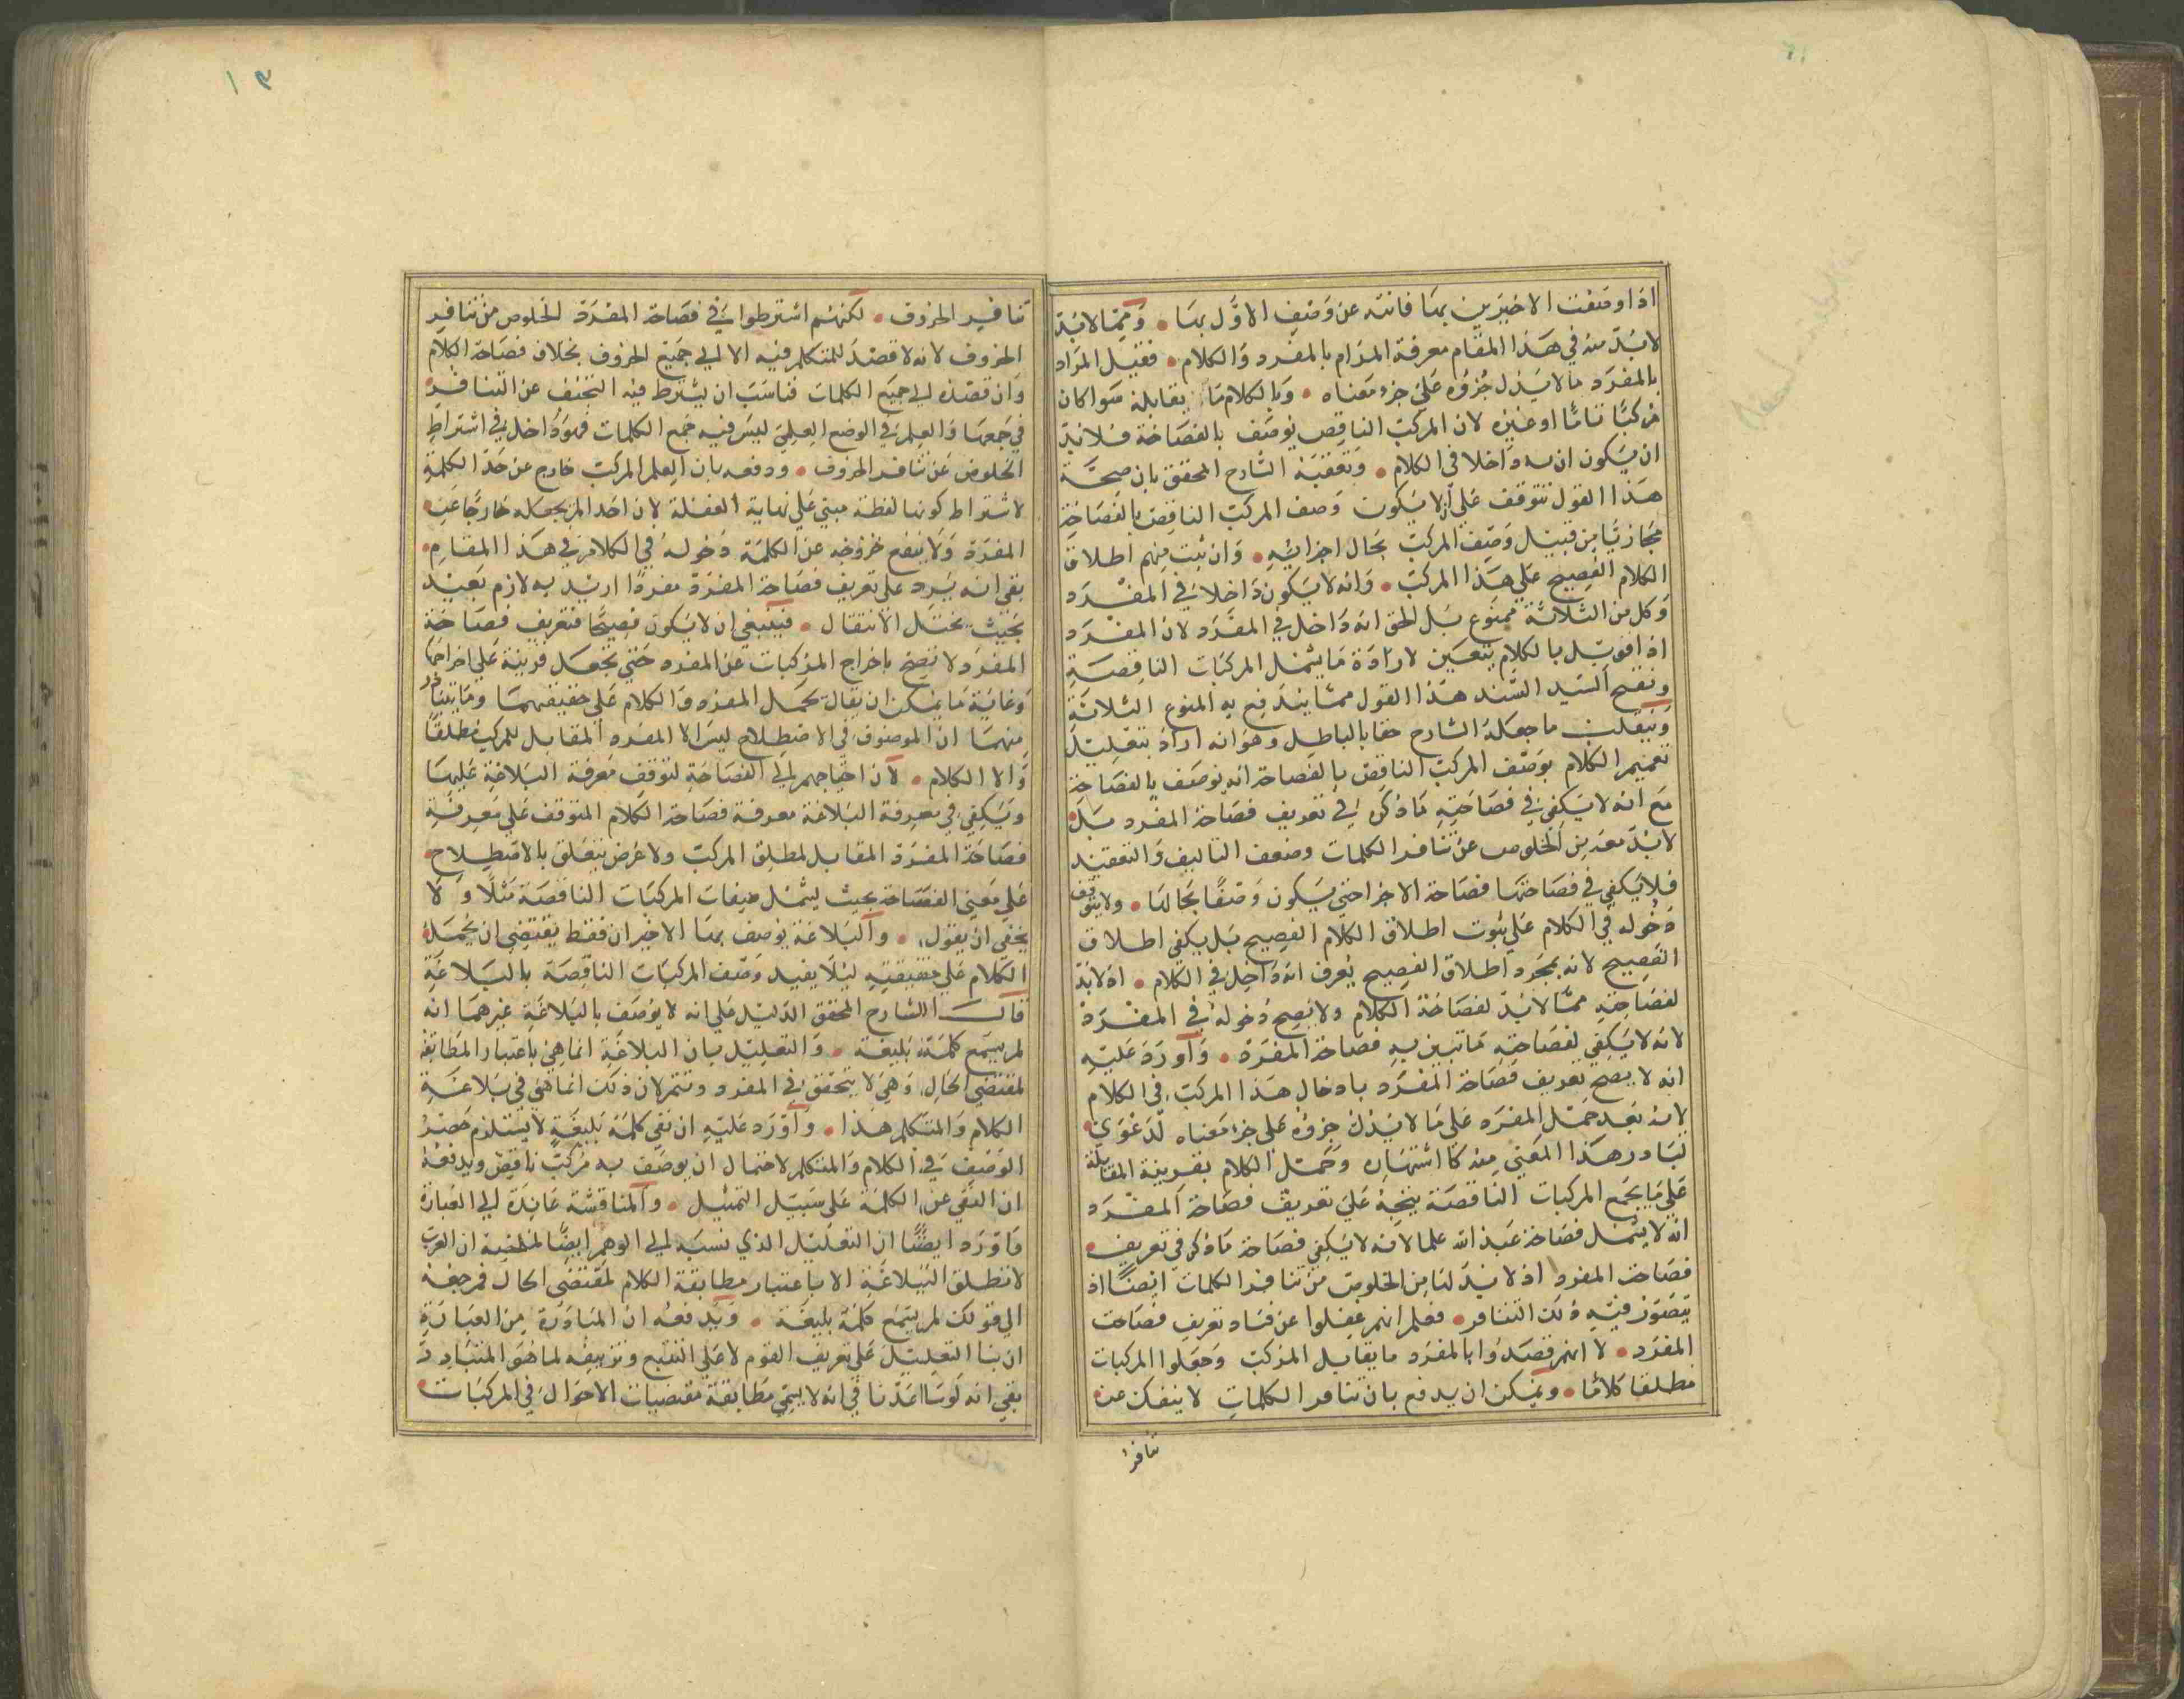 اذا وصفت الاخيرين بها فانته عن وصف الاول بها • ومما لابد
لابد منه في هذا المقام معرفة المرام بالمفرد والكلام • فقيل المراد
بالمفرد ما لا يدل جزؤه على جزء معناه • وبالكلام ما يقابله سوا كان
مركبا تاما او غيره لان المركب الناقص يوصف بالفصاحة فلا بد
ان يكون ان به داخلا في الكلام • وتعقبه الشارح المحقق بان صحة
هذا القول تتوقف على ان لا يكون وصف المركب الناقص بالفصاحة
مجازيا من قبيل وصف المركب بحال اجزائه • وان ثبت منهم اطلاق
الكلام الفصيح على هذا المركب • وانه لا يكون داخلا في المفرد
وكل من الثلاثة ممنوع بل الحق انه داخل في المفرد لان المفرد
اذا قوبل بالكلام يتعين لارادة ما يشمل المركبات الناقصة
ونقح السيد السند هذا القول مما يندفع به المنوع الثلاثة
وينقلب ما جعله الشارح حقا بالباطل وهو انه اراد بتعليل
تعميم الكلام بوصف المركب الناقص بالفصاحة انه يوصف بالفصاحة
مع انه لا يكفي في فصاحته ما ذكر في تعريف فصاحة المفرد بل
لابد معه من الخلوص عن تنافر الكلمات وضعف التاليف والتعقيد
فلا يكفي في فصاحتها فصاحة الاجزا حتى يكون وصفا بحالها • ولا يتوقف
دخوله في الكلام على ثبوت اطلاق الكلام الفصيح بل يكفي اطلاق
الفصيح لانه بمجرد اطلاق الفصيح يعرف انه داخل في الكلام • اذ لابد
لفصاحته مما لابد لفصاحة الكلام ولا يصح دخوله في المفرد
لانه لا يكفي لفصاحته ما تبين به فصاحة المفرد • واورد عليه
انه لا يصح تعريف فصاحة المفرد بادخال هذا المركب في الكلام
لانه بعد حمل المفرد على ما لا يدل جزؤه على جزء معناه لدعوى
تبادر هذا المعنى منه كما اشتهاره وحمل الكلام بقرينة المقابلة
على ما يجمع المركبات الناقصة يتجه على تعريف فصاحة المفرد
انه لا يشمل فصاحة عبد الله علما لانه لا يكفي فصاحة ما ذكر في تعريف
فصاحة المفرد اذ لا بد لنا من الخلوص من تنافر الكلمات ايضا اذ
يتصور فيه ذلك التنافر • فعلم انهم غفلوا عن فساد تعريف فصاحت
المفرد • لا انهم قصدوا بالمفرد ما يقابل المركب وجعلوا المركبات
مطلقا كلاما • ويمكن ان يدفع بان تنافر الكلمات لا ينفك عن
تنافر
١٣
تنافر الحروف • لكنهم اشترطوا في فصاحة المفرد الخلوص من تنافر
الحروف لانه لا قصد للمتكلم فيه الا الى جميع الحروف بخلاف فصاحة الكلام
وان قصده الى جميع الكلمات فناسب ان يشترط فيه التجنف عن التنافر
في جمعها والعلم في الوضع العلمي ليس فيه جمع الكلمات فهو داخل في اشتراط
الخلوص عن تنافر الحروف • ودفعه بان العلم المركب خارج عن حد الكلمة
لاشتراط كونها لفظة مبني على نهاية الغفلة لان احدا لم يجعله خارجا عن
المفرد ولا ينفع خروجه عن الكلمة دخوله في الكلام في هذا المقام
بقي انه يرد على تعريف فصاحة المفرد مفردا اريد به لازم بعيد
بحيث يختل الانتقال • فينبغي ان لا يكون فصيحا فتعريف فصاحة
المفرد لا يصح باخراج المركبات عن المفرد حتى تجعل قرينة على اخراجها
وغاية ما يمكن ان يقال تحمل المفرد والكلام على حقيقتهما وما يتبادر
منهما ان الموصوف في الاصطلاح ليس الا المفرد المقابل للمركب مطلقا
والا الكلام • لان احتياجهم الى الفصاحة لتوقف معرفة البلاغة عليها
ويكفي في معرفة البلاغة معرفة فصاحة الكلام المتوقف على معرفة
فصاحة المفرد المقابل لمطلق المركب ولا غرض يتعلق بالاصطلاح
على معنى الفصاحة بحيث يشمل صفات المركبات الناقصة مثلا ولا
يخفى ان يقول • والبلاغة يوصف بها الاخيران فقط يقتضي ان يحمل
الكلام على حقيقته لئلا يفيد وصف المركبات الناقصة بالبلاغة
قال الشارح المحقق الدليل على انه لا يوصف بالبلاغة غيرهما انه
لم يسمع كلمة بليغة • والتعليل بان البلاغة انما هي باعتبار المطابقة
لمقتضى الحال وهي لا يتحقق في المفرد وهم لان ذلك انما هي في بلاغة
الكلام والمتكلم هذا • واورد عليه ان نفي كلمة بليغة لا يستلزم حصر
الوصف في الكلام والمتكلم لاحتمال ان يوصف به مركب ناقص ويدفعه
ان النفي عن الكلمة على سبيل التمثيل • والمناقشة عائدة الى العبارة
واورد ايضا ان التعليل الذي نسبه الى الوهم ايضا ان العرب
لا تطلق البلاغة الا باعتبار مطابقة الكلام لمقتضى الحال فمرجعه
الى قولك لم يسمع كلمة بليغة • ويدفعه ان المتبادرة من العبارة
ان بنا التعليل على تعريف القوم لا على التتبع وتزييفه لما هو المتبادر
بقي انه لو ساعدنا في انه لا يتم مطابقة مقتضيات الاحوال في المركبات